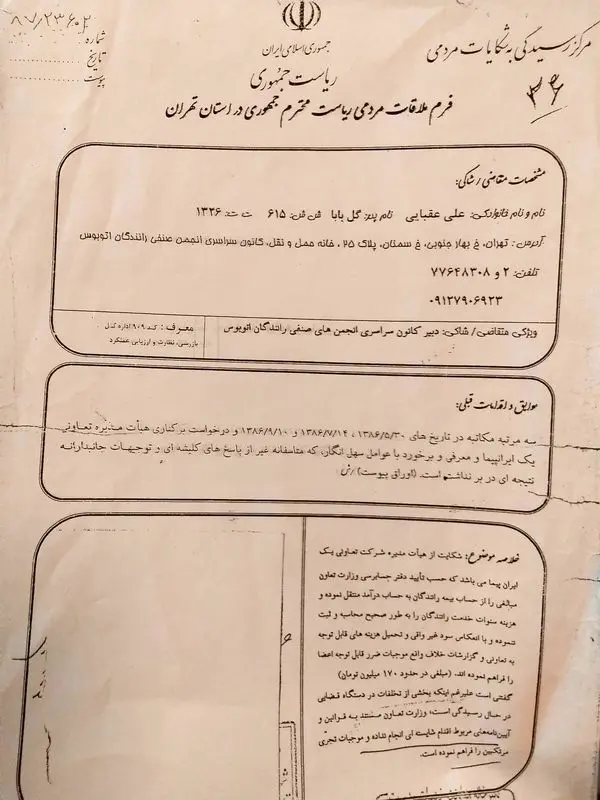 ۸۷/۲۳۶۰۲
شماره
تاریخ
پیوست
جمهوری اسلامی ایران
ریاست جمهوری
مرکز رسیدگی به شکایات مردمی
۳۶
فرم ملاقات مردمی ریاست محترم جمهوری در استان تهران
مشخصات متقاضی / شاکی:
نام و نام خانوادگی: علی عقبایی نام پدر: گل بابا ش ش: ۶۱۵ ت ت: ۱۳۲۶
آدرس: تهران، خ بهار جنوبی، خ سمنان، پلاک ۲۵، خانه حمل و نقل، کانون سراسری انجمن صنفی رانندگان اتوبوس
تلفن: ۲ و ۷۷۶۴۸۳۰۸
۰۹۱۲۷۹۰۶۹۲۳
ویژگی متقاضی/ شاکی: دبیر کانون سراسری انجمن های صنفی رانندگان اتوبوس
معرف: کد ۹۰۹ اداره کل
بازرسی، نظارت و ارزیابی عملکرد
سوابق و اقدامات قبلی:
سه مرتبه مکاتبه در تاریخ های ۱۳۸۶/۵/۳۰ ، ۱۳۸۶/۷/۱۴ و ۱۳۸۶/۹/۱۰ و درخواست برکناری هیأت مدیره تعاونی
یک ایرانپیما و معرفی و برخورد با عوامل سهل انگار، که متاسفانه غیر از پاسخ های کلیشه ای و توجیهات جانبدارانه
نتیجه ای در بر نداشتم است. (اوراق پیوست)
خلاصه موضوع: شکایت از هیأت مدیره شرکت تعاونی یک
ایران پیما می باشد که حسب تأیید دفتر حسابرسی وزارت تعاون
مبالغی را از حساب بیمه رانندگان به حساب درآمد منتقل نموده و
هزینه سنوات خدمت رانندگان را به طور صحیح محاسبه و ثبت
ننموده و با انعکاس سود غیر واقی و تحمیل هزینه های قابل توجه
به تعاونی و گزارشات خلاف واقع موجبات ضرر قابل توجه اعضا
را فراهم نموده اند. (مبلغی در حدود ۱۷۰ میلیون تومان)
گفتنی است علیرغم اینکه بخشی از تخلفات در دستگاه قضایی
در حال رسیدگی است، وزارت تعاون مستند به قوانین و
آیین‌نامه‌های مربوط اقدام شایسته ای انجام نداده و موجبات تجری
مرتکبین را فراهم نموده است.